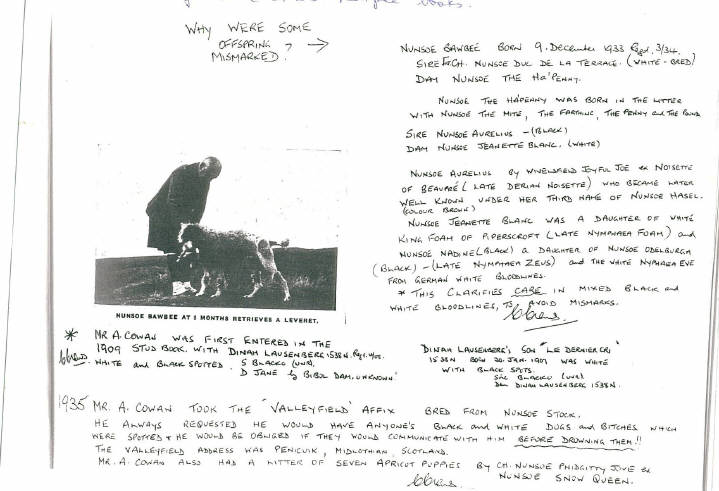 books.
WHY WERE SOME
OFFSPRING ? →
MISMARKED.
NUNSOE BAWBEE BORN 9. December 1933 Rgd. 3/34.
SIRE Int. CH. NUNSOE DUC DE LA TERRACE. (WHITE-BRED)
DAM NUNSOE THE Ha'PENNY.
NUNSOE THE HA'PENNY WAS BORN IN THE LITTER
WITH NUNSOE THE MITE, THE FARTHING, THE PENNY and THE POUND
SIRE NUNSOE AURELIUS - (BLACK)
DAM NUNSOE JEANETTE BLANC. (WHITE)
NUNSOE AURELIUS by WHIPPENDELL JOYFUL JOE ex NOISETTE
OF BEAUPRÉ (LATE DERIAN NOISETTE) WHO BECAME LATER
WELL KNOWN UNDER HER THIRD NAME OF NUNSOE HASEL.
(COLOUR BROWN)
NUNSOE JEANETTE BLANC WAS A DAUGHTER OF WHITE
KING FOAM OF PIPERSCROFT (LATE NYMPHAEA FOAM) and
NUNSOE NADINE (BLACK) a DAUGHTER OF NUNSOE ODELBURGA
(BLACK) - (LATE NYMPHAEA ZEUS) and THE WHITE NYPHAEA EVE
FROM GERMAN WHITE BLOODLINES.
* THIS CLARIFIES CARE IN MIXED BLACK and
WHITE BLOODLINES, TO AVOID MISMARKS.
NUNSOE BAWBEE AT 5 MONTHS RETRIEVES A LEVERET.
* MR A. COWAN WAS FIRST ENTERED IN THE
1909 STUD BOOK. WITH DINAH LAUSENBERG 1538N. Rgd. 4/08.
WHITE and BLACK SPOTTED. S BLACKO (UNR).
D JANE by BIBOL DAM. UNKNOWN'
DINAH LAUSENBERG'S, SON 'LE DERNIER CRI'
1538N BORN 20. JAN. 1907 WAS WHITE
WITH BLACK SPOTS.
Sire BLACKO (UNR)
Dam DINAH LAUSENBERG 1538N.
1935 MR. A. COWAN TOOK THE 'VALLEYFIELD' AFFIX BRED FROM NUNSOE STOCK.
HE ALWAYS REQUESTED HE WOULD HAVE ANYONE'S BLACK and WHITE DOGS and BITCHES WHICH
WERE SPOTTED & HE WOULD BE OBLIGED IF THEY WOULD COMMUNICATE WITH HIM BEFORE DROWNING THEM!!
THE VALLEYFIELD ADDRESS WAS PENICUIK, MIDLOTHIAN, SCOTLAND.
MR. A. COWAN ALSO HAD A LITTER OF SEVEN APRICOT PUPPIES BY CH. NUNSOE PHIDGITTY JIVE ex
NUNSOE SNOW QUEEN.